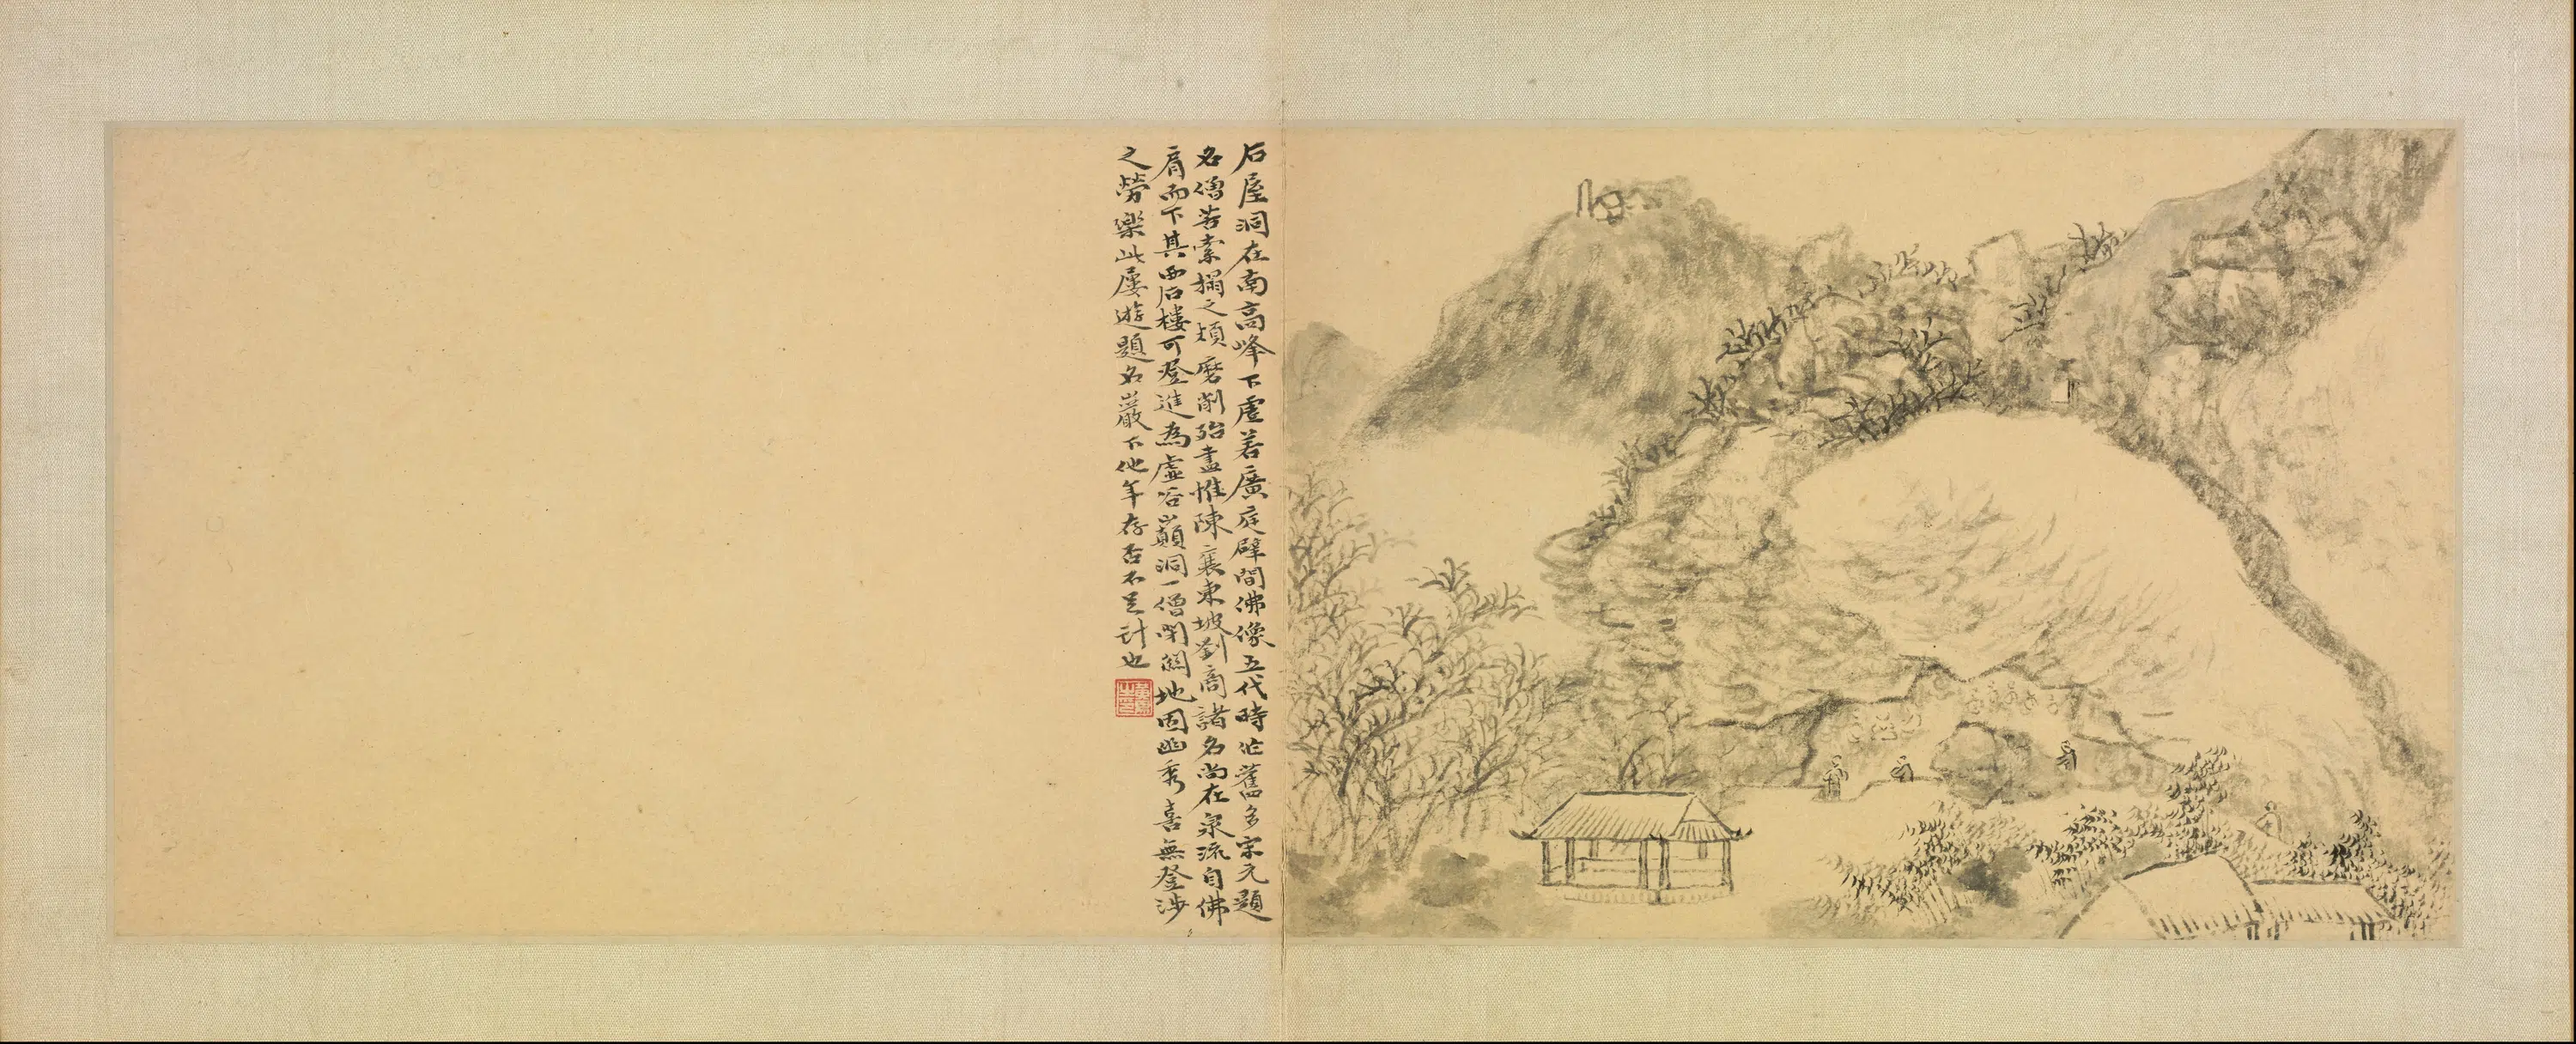 石屋洞在南高峰下虛若廣庭壁間佛像五代時仏舊多宋元題
名僧苦索搨之煩磨削殆盡惟陳襄東坡劉商諸名尚在泉流自佛
肩而下其西石樓可登進為虛谷巔洞一僧閉關地固幽秀喜無登涉
之勞樂此屢遊題名巖下他年存否不足計也